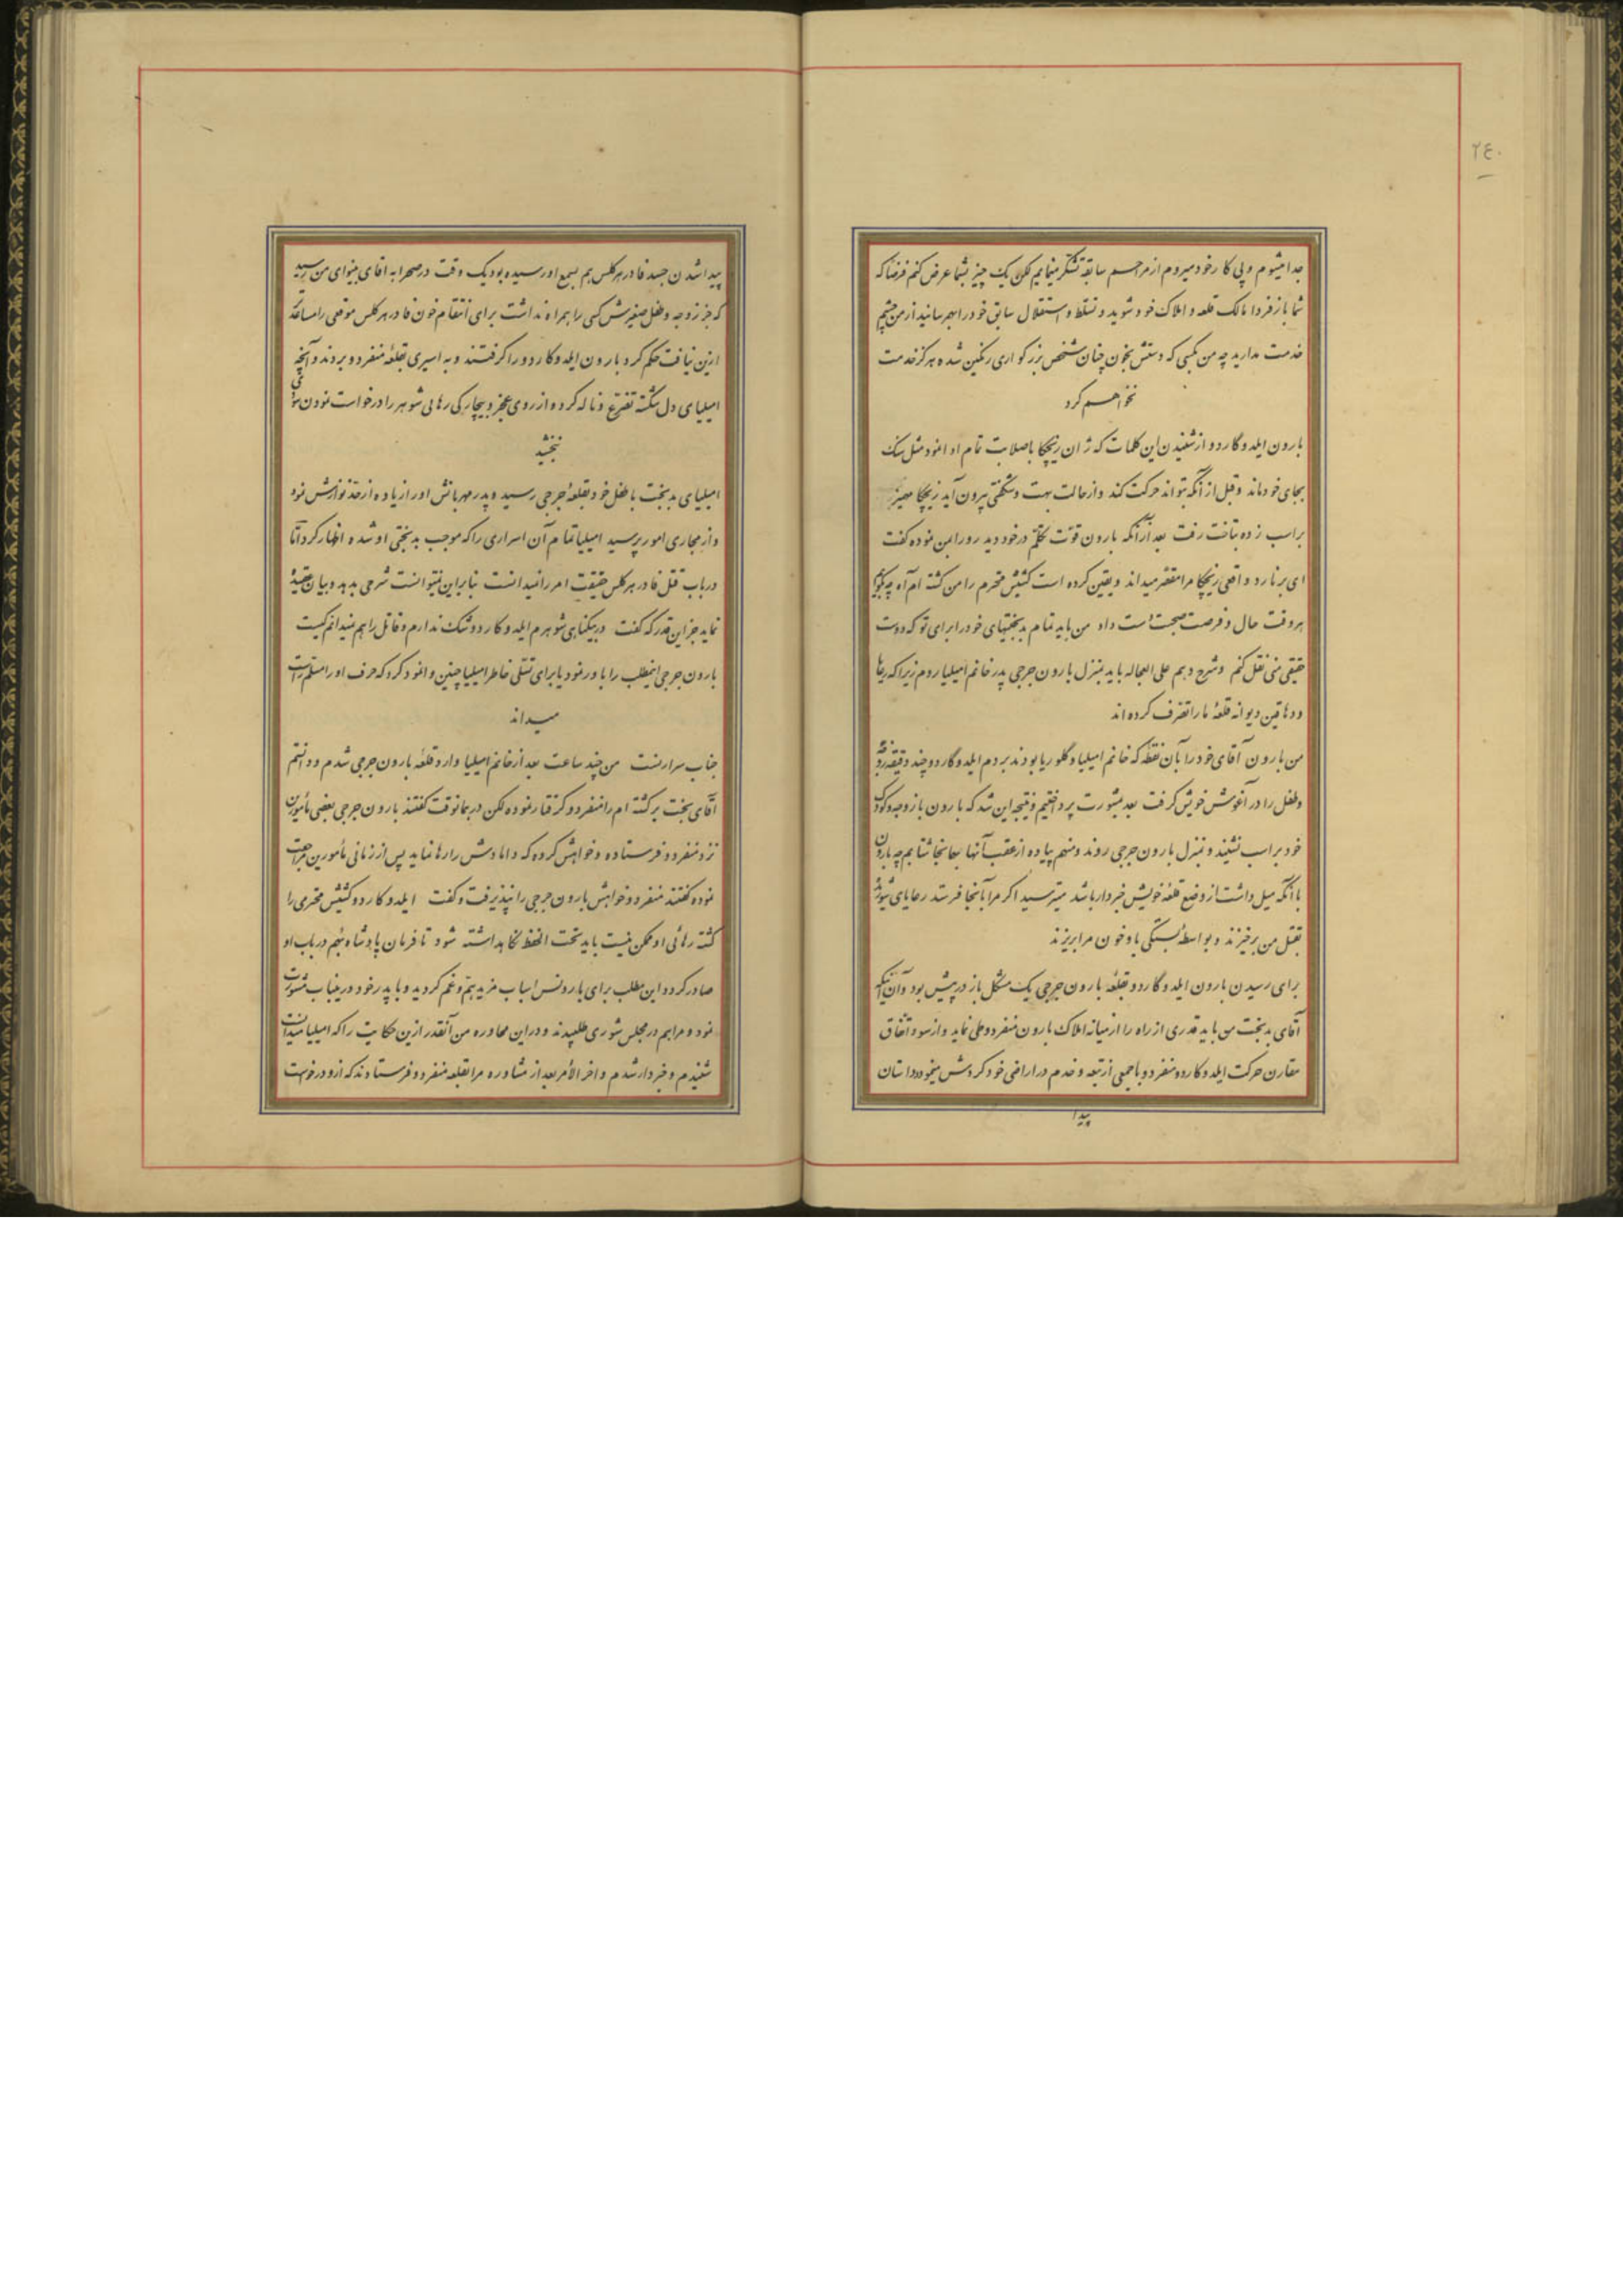 ۲۴۰
جدا میشوم و پی کار خود میروم از مراحم سابقه تشکر مینمایم لکن یک چیز بشما عرض کنم فرضا که
شما باز فردا مالک قلعه و املاک خود شوید و تسلط و استقلال سابق خود را بهم رسانید از من چشم
خدمت مدارید چه من بکسی که دستش بخون چنان شخص بزرگواری رنگین شده هرگز خدمت
نخواهم کرد
بارون ایلدوگاردو از شنیدن این کلمات که ژان ریچکا باصلابت تمام ادا نمود مثل سنک
بجای خود ماند و قبل از آنکه بتواند حرکت کند و از حالت بهت و شگفتی بیرون آید ریچکا مهمیز
بر اسب زده بتاخت رفت بعد از آنکه بارون قوت تکلم در خود دید رو را بمن نموده گفت
ای برنارد واقعی ریچکا مرا مقصر میداند و یقین کرده است کشیش محترم را من کشته ام آه چه بگویم
هر وقت حال و فرصت صحبت دست داد من باید تمام بدبختیهای خود را برای تو که دوست
حقیقی منی نقل کنم و شرح دهم علی العجاله باید بمنزل بارون جرجی پدر خانم امیلیا روم زیرا که رعایا
و دهاقین دیوانه قلعهٔ ما را تصرف کرده اند
من بارون آقای خود را بآن نقطه که خانم امیلیا و گلوریا بودند بردم ایلدوگاردو چند دقیقه زوجه
و طفل را در آغوش خویش گرفت بعد بمشورت پرداختیم و نتیجه این شد که بارون با زوجه و کودک
خود بر اسب نشیند و بمنزل بارون جرجی روند و منهم پیاده از عقب آنها بهانجا شتابم چه بارون
با آنکه میل داشت از وضع قلعهٔ خویش خبردار باشد میترسید اگر مرا بآنجا فرستد رعایای
بقتل من برخیزند و بواسطهٔ بستگی باو خون مرا بریزند
برای رسیدن بارون ایلدوگاردو بقلعهٔ بارون جرجی یک مشکل باز در پیش بود و آن اینکه
آقای بدبخت من باید قدری از راه را از میانه املاک بارون منفردو طی نماید و از سوء اتفاق
مقارن حرکت ایلدوگاردو منفردو با جمعی از تبعه و خدم در اراضی خود گردش مینمود و داستان
پیدا
پیدا شدن جسد فادر هرکلس هم بسمع او رسیده بود یک وقت در صحرا به آقای بینوای من رسید
که جز زوجه و طفل صغیرش کسی را همراه نداشت برای انتقام خون فادر هرکلس موقعی را مساعدتر
ازین نیافت حکم کرد بارون ایلدوکاردو را گرفتند و به اسیری بقلعهٔ منفردو بردند و آنچه
امیلیای دل شکسته تضرع و ناله کرد و از روی عجز و بیچارگی رهائی شوهر را درخواست نمود
نبخشید
امیلیای بدبخت با طفل خود بقلعهٔ جرجی رسید و پدر مهربانش او را زیاده از حد نوازش نمود
و از مجاری امور پرسید امیلیا تمام آن اسراری را که موجب بدبختی او شده اظهار کرد اما
در باب قتل فادر هرکلس حقیقت امر را نمیدانست بنابراین نمیتوانست شرحی بدهد و بیان عقیدهٔ
نماید جز این قدر که گفت در بیگناهی شوهرم ایلدوکاردو شک ندارم و قاتل را هم نمیدانم کیست
بارون جرجی اینمطلب را باور نمود یا برای تسلی خاطر امیلیا چنین وانمود کرد که حرف او را مسلم و راست
میداند
جناب سرارنست من چند ساعت بعد از خانم امیلیا وارد قلعهٔ بارون جرجی شدم و دانستم
آقای بخت برگشته ام را منفردو گرفتار نموده لکن در همانوقت گفتند بارون جرجی بعضی مأمورین
نزد منفردو فرستاده و خواهش کرده که دامادش را رها نماید پس از زمانی مأمورین مراجعت
نموده گفتند منفردو خواهش بارون جرجی را نپذیرفت و گفت ایلدوکاردو کشیش محترمی را
کشته رهائی او ممکن نیست باید تحت الحفظ نگاهداشته شود تا فرمان پادشاه هم در باب او
صادر گردد این مطلب برای بارونس اسباب مزید هم و غم گردید و با پدر خود در اینباب مشورت
نمود و مرا هم در مجلس شوری طلبیدند و در این محاوره من آنقدر ازین حکایت را که امیلیا میدانست
شنیدم و خبردار شدم و اخر الامر بعد از مشاوره مرا بقلعه منفردو فرستادند که از او درخواست